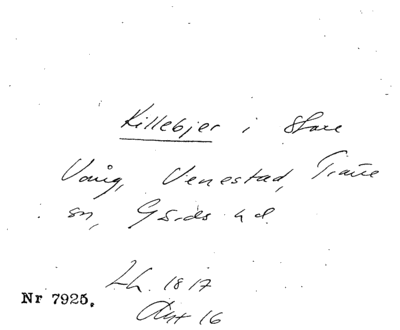 Killebjer i Store
Vång, Venestad, Träne
sn, Gärds hd.
Lh. 1817
Akt 16
Nr 7925.